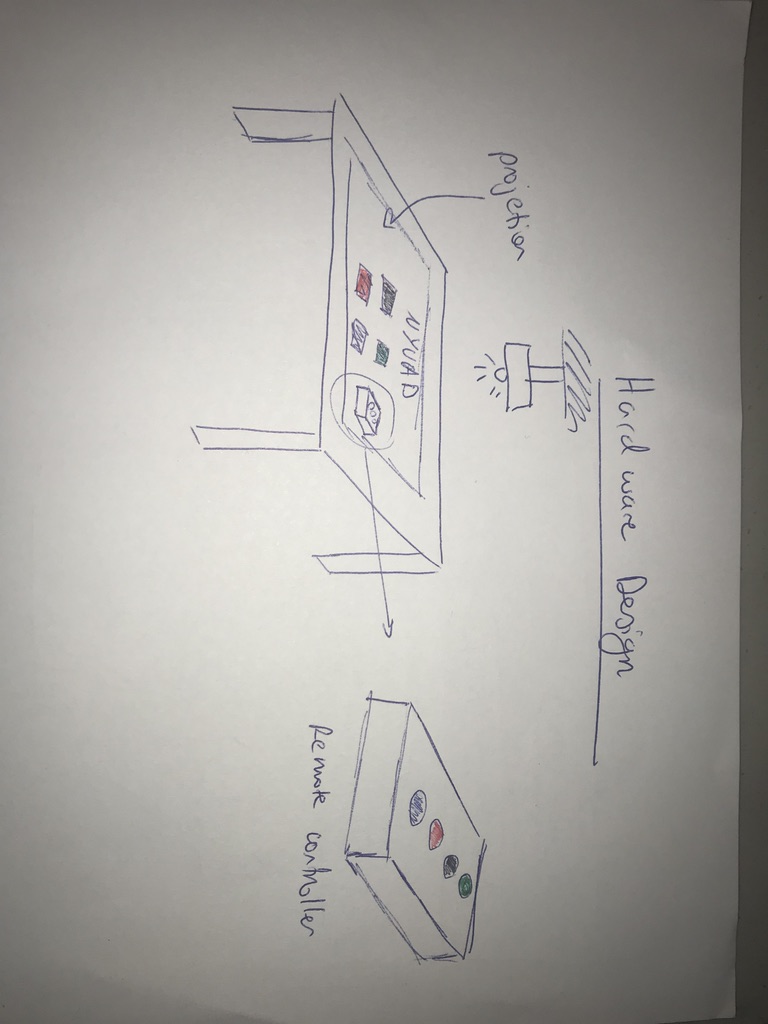 Hardware Design
projetion
NYUAD
Remote controller